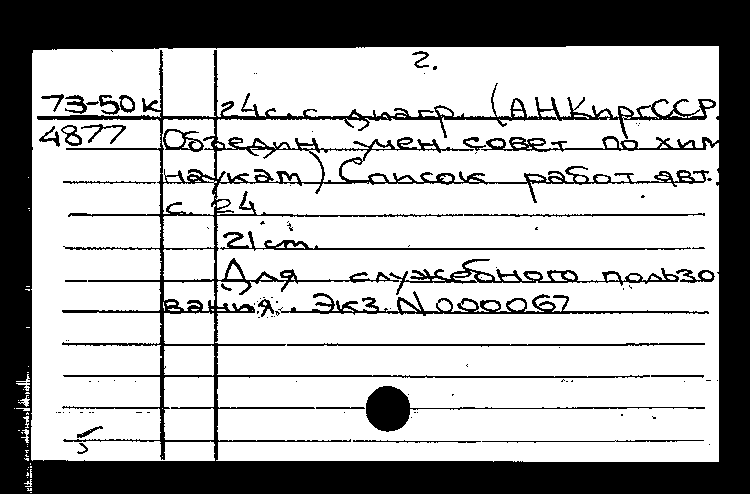 2.
73-50к 24 с. с диагр. (АН КиргССР.
4877 Объедин. учен. совет по хим
наукам). Список работ авт.:
с. 24.
21 cm.
Для служебного пользо
вания. Экз. N 000067
5